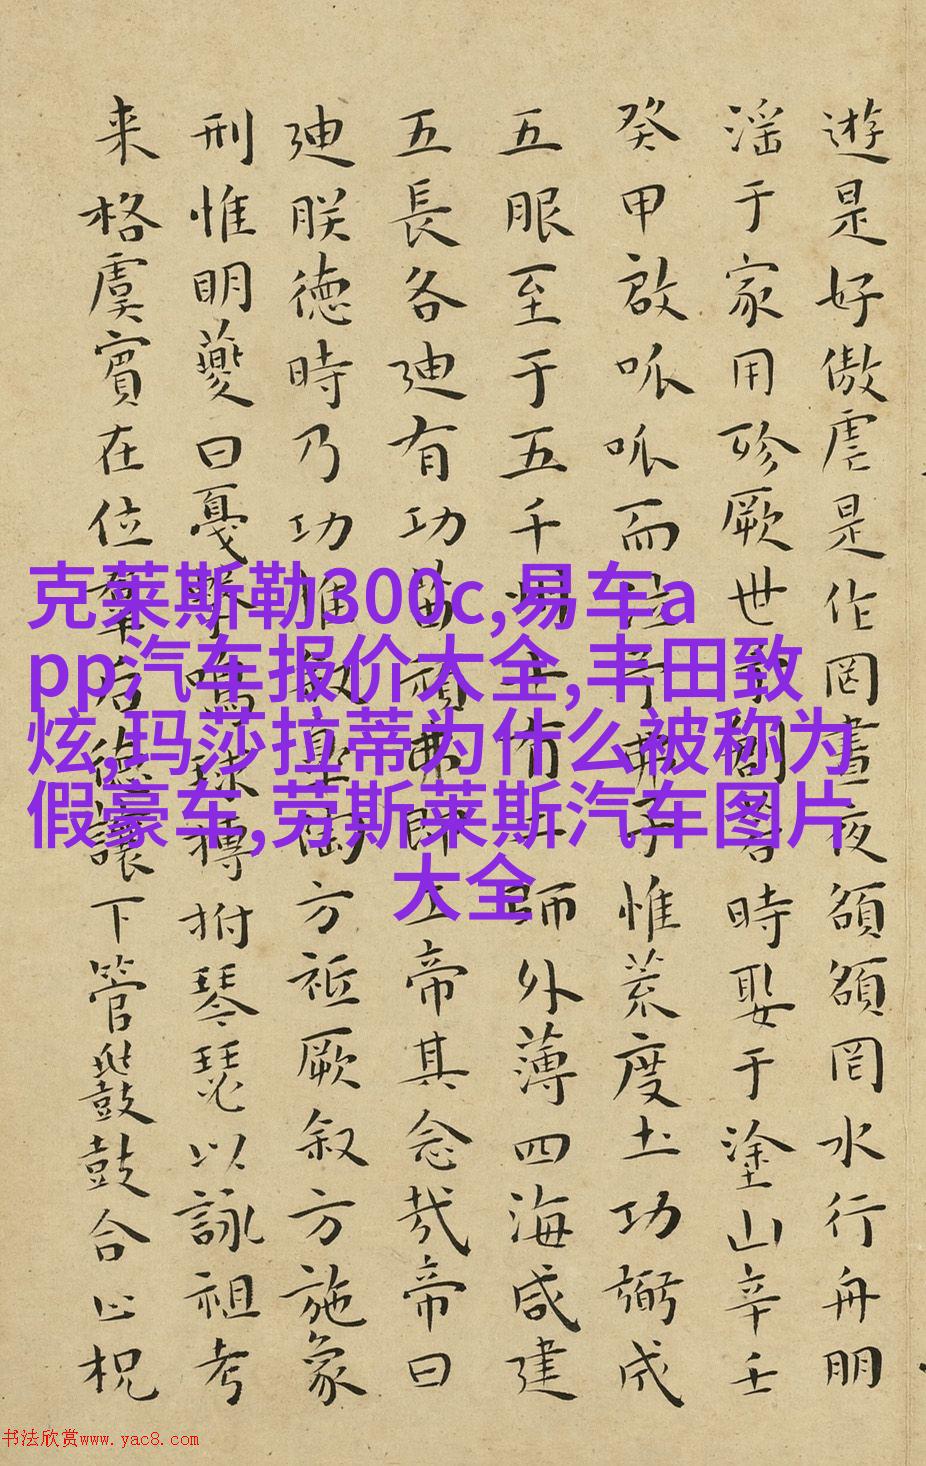 遊是好傲虐是作罔晝夜頟頟罔水行舟朋
淫于家用殄厥世予創若時娶于塗山辛壬
癸甲啟呱呱而泣予弗子惟荒度土功弼成
五服至于五千州十有二師外薄四海咸建
五長各迪有功苗頑弗即工帝其念哉帝曰
迪朕德時乃功惟叙皋陶方祗厥叙方施象
刑惟明夔曰戛擊鳴球搏拊琴瑟以詠祖考
来格虞賓在位羣后德讓下管鼗鼓合止柷
克莱斯勒300c,易车a
pp汽车报价大全,丰田致
炫,玛莎拉蒂为什么被称为
假豪车,劳斯莱斯汽车图片
大全
书法欣赏www.yac8.com